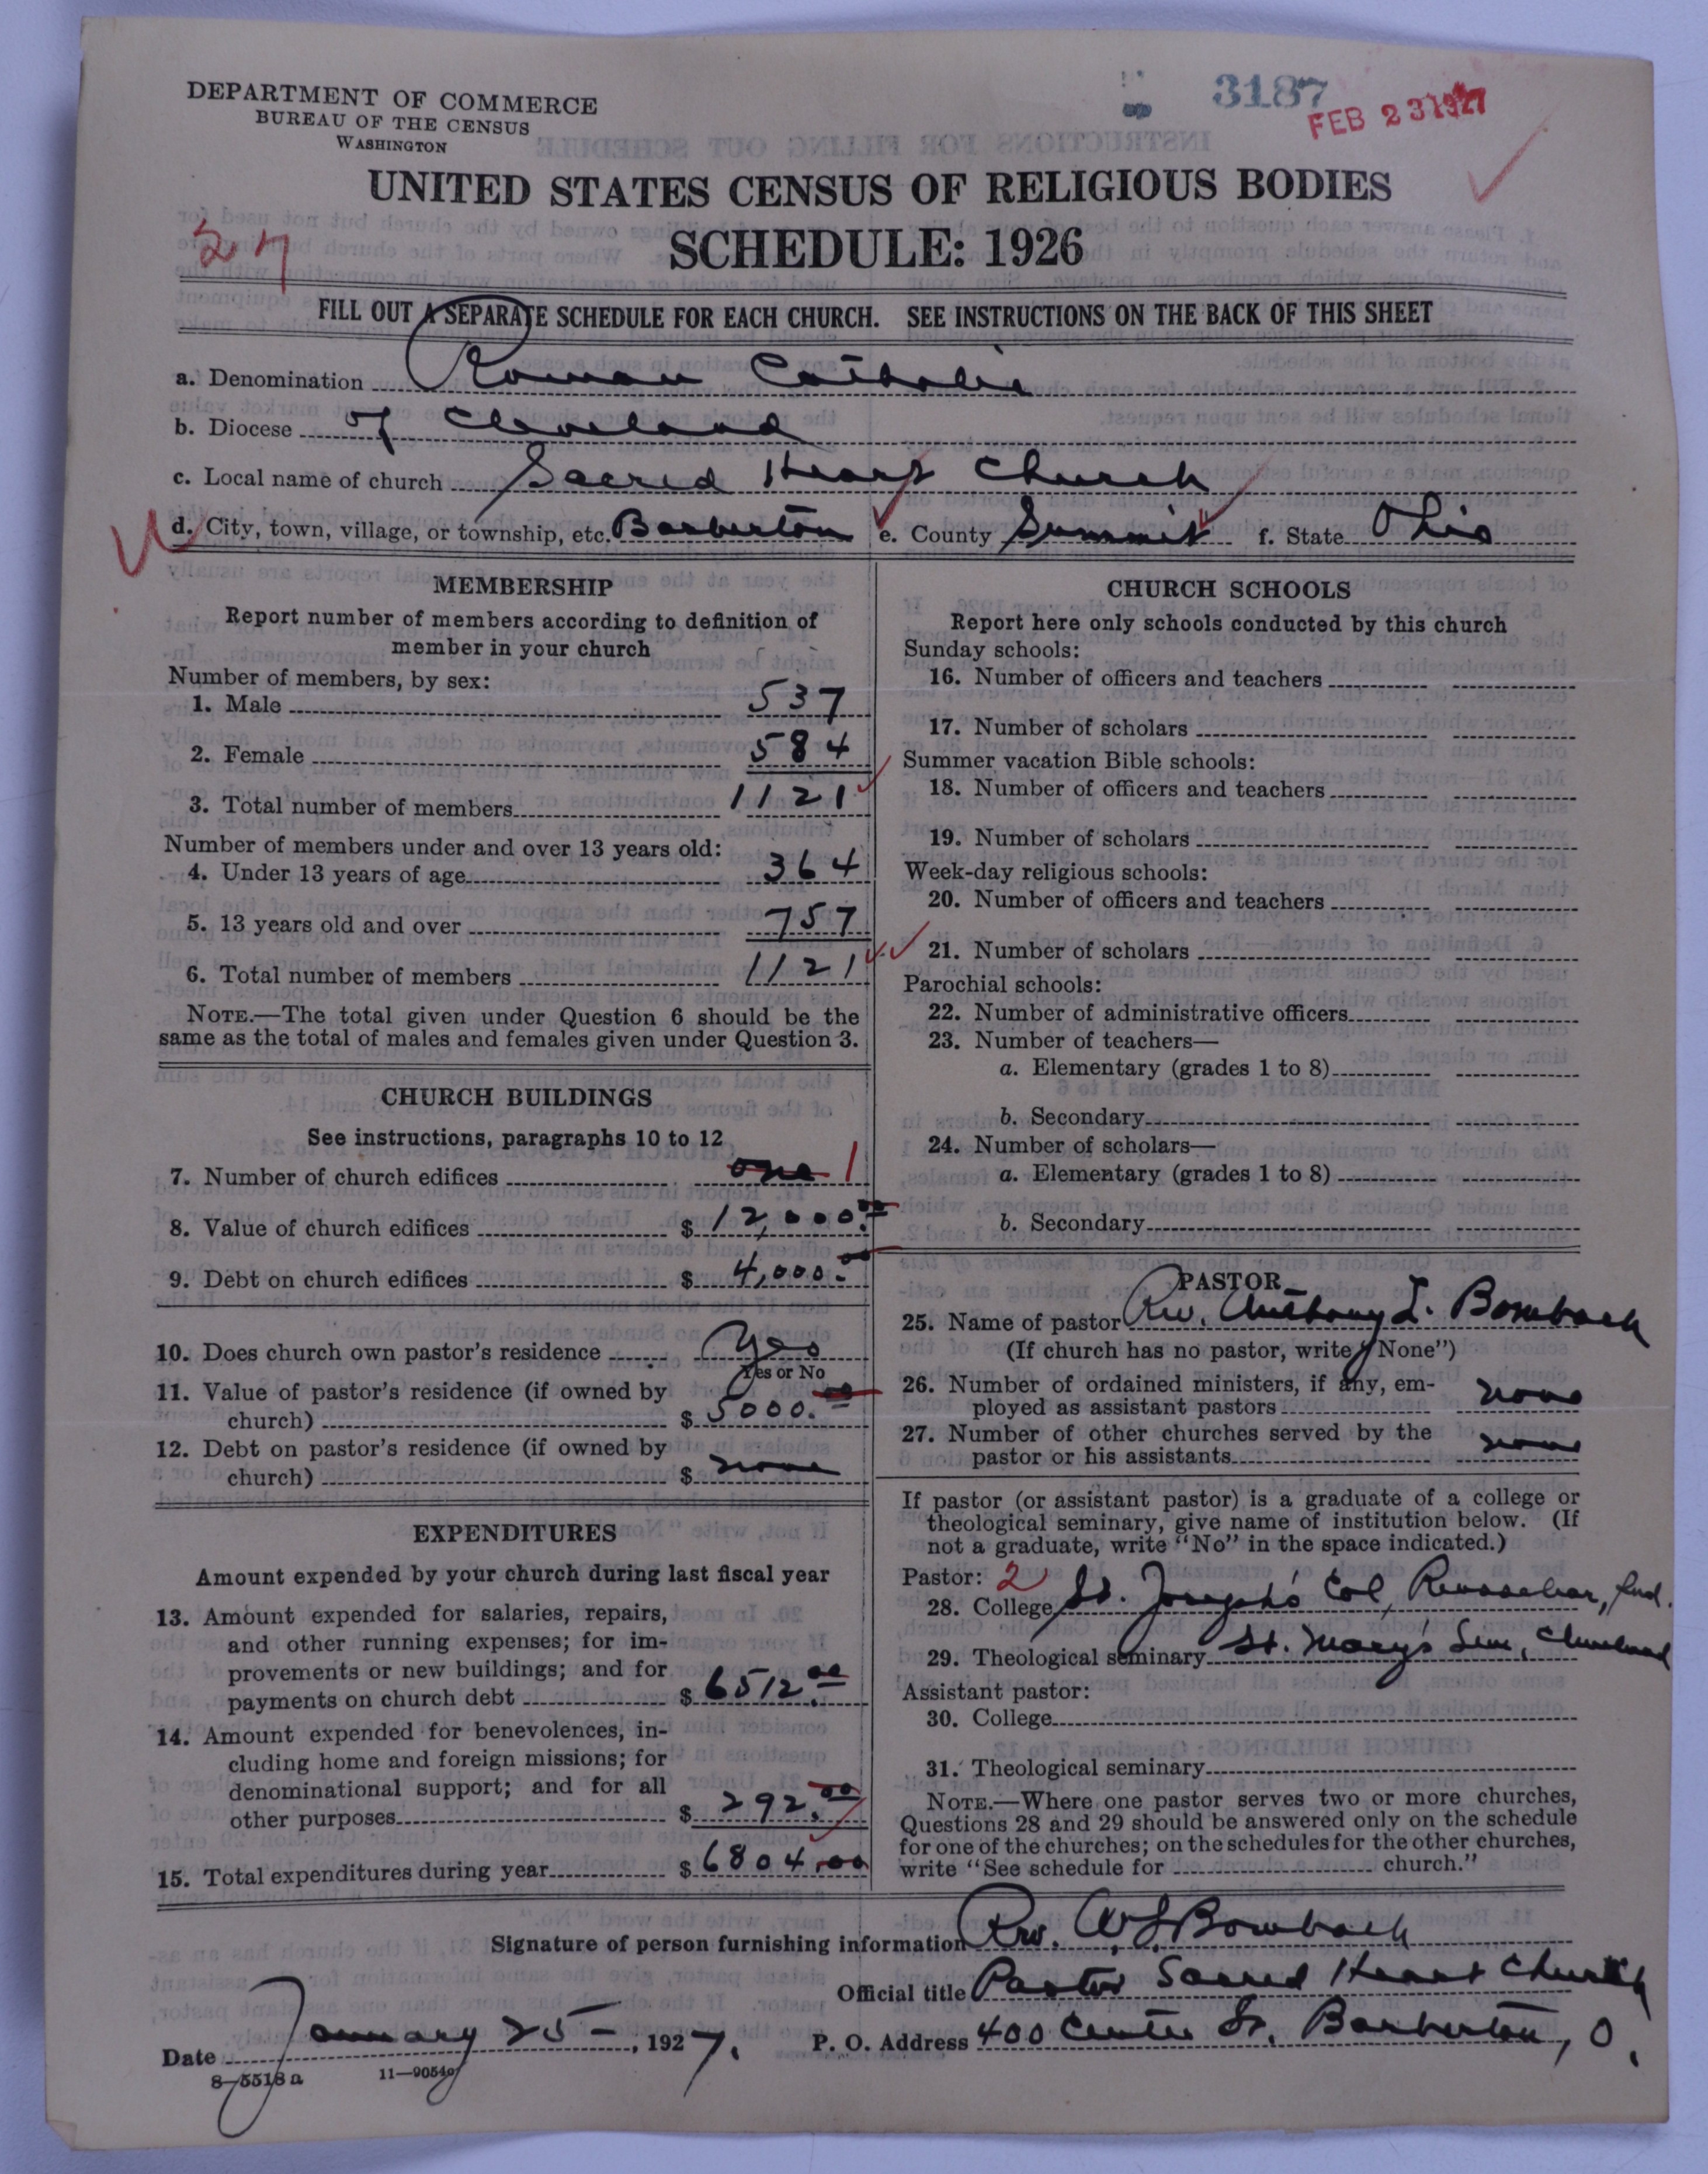 DEPARTMENT OF COMMERCE
BUREAU OF THE CENSUS
WASHINGTON
3187
FEB 23 1927
UNITED STATES CENSUS OF RELIGIOUS BODIES
27
SCHEDULE: 1926
FILL OUT A SEPARATE SCHEDULE FOR EACH CHURCH. SEE INSTRUCTIONS ON THE BACK OF THIS SHEET
a. Denomination Roman Catholic
b. Diocese of Cleveland
c. Local name of church Sacred Heart Church
d. City, town, village, or township, etc. Barberton e. County Summit f. State Ohio
MEMBERSHIP
Report number of members according to definition of
member in your church
Number of members, by sex:
1. Male 537
2. Female 584
3. Total number of members 1121
Number of members under and over 13 years old:
4. Under 13 years of age 364
5. 13 years old and over 757
6. Total number of members 1121
NOTE.—The total given under Question 6 should be the
same as the total of males and females given under Question 3.
CHURCH BUILDINGS
See instructions, paragraphs 10 to 12
7. Number of church edifices one 1
8. Value of church edifices $ 12,000.00
9. Debt on church edifices $ 4,000.00
10. Does church own pastor's residence Yes
Yes or No
11. Value of pastor's residence (if owned by
church) $ 5000.00
12. Debt on pastor's residence (if owned by
church) $ none
EXPENDITURES
Amount expended by your church during last fiscal year
13. Amount expended for salaries, repairs,
and other running expenses; for im-
provements or new buildings; and for
payments on church debt $ 6512.00
14. Amount expended for benevolences, in-
cluding home and foreign missions; for
denominational support; and for all
other purposes $ 292.00
15. Total expenditures during year $ 6804.00
CHURCH SCHOOLS
Report here only schools conducted by this church
Sunday schools:
16. Number of officers and teachers
17. Number of scholars
Summer vacation Bible schools:
18. Number of officers and teachers
19. Number of scholars
Week-day religious schools:
20. Number of officers and teachers
21. Number of scholars
Parochial schools:
22. Number of administrative officers
23. Number of teachers—
a. Elementary (grades 1 to 8)
b. Secondary
24. Number of scholars—
a. Elementary (grades 1 to 8)
b. Secondary
PASTOR
25. Name of pastor Rev. Anthony L. Bombach
(If church has no pastor, write "None")
26. Number of ordained ministers, if any, em-
ployed as assistant pastors none
27. Number of other churches served by the
pastor or his assistants none
If pastor (or assistant pastor) is a graduate of a college or
theological seminary, give name of institution below. (If
not a graduate, write "No" in the space indicated.)
Pastor: 2
28. College St. Joseph's Col, Rensselaer, Ind.
29. Theological seminary St. Mary's Sem, Cleveland
Assistant pastor:
30. College
31. Theological seminary
NOTE.—Where one pastor serves two or more churches,
Questions 28 and 29 should be answered only on the schedule
for one of the churches; on the schedules for the other churches,
write "See schedule for church."
Signature of person furnishing information Rev. A. L. Bombach
Official title Pastor Sacred Heart Church
Date January 25 —, 1927. P. O. Address 400 Center St. Barberton, O.
8—5518 a 11—9054